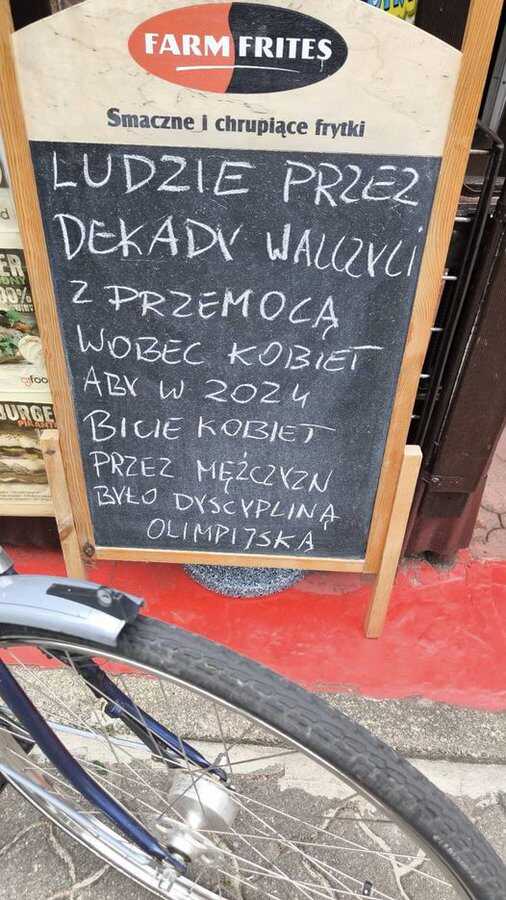 FARM FRITES
Smaczne i chrupiące frytki
LUDZIE PRZEZ
DEKADY WALCZYLI
Z PRZEMOCĄ
WOBEC KOBIET
ABY W 2024
BICIE KOBIET
PRZEZ MĘŻCZYZN
BYŁO DYSCYPLINĄ
OLIMPIJSKĄ